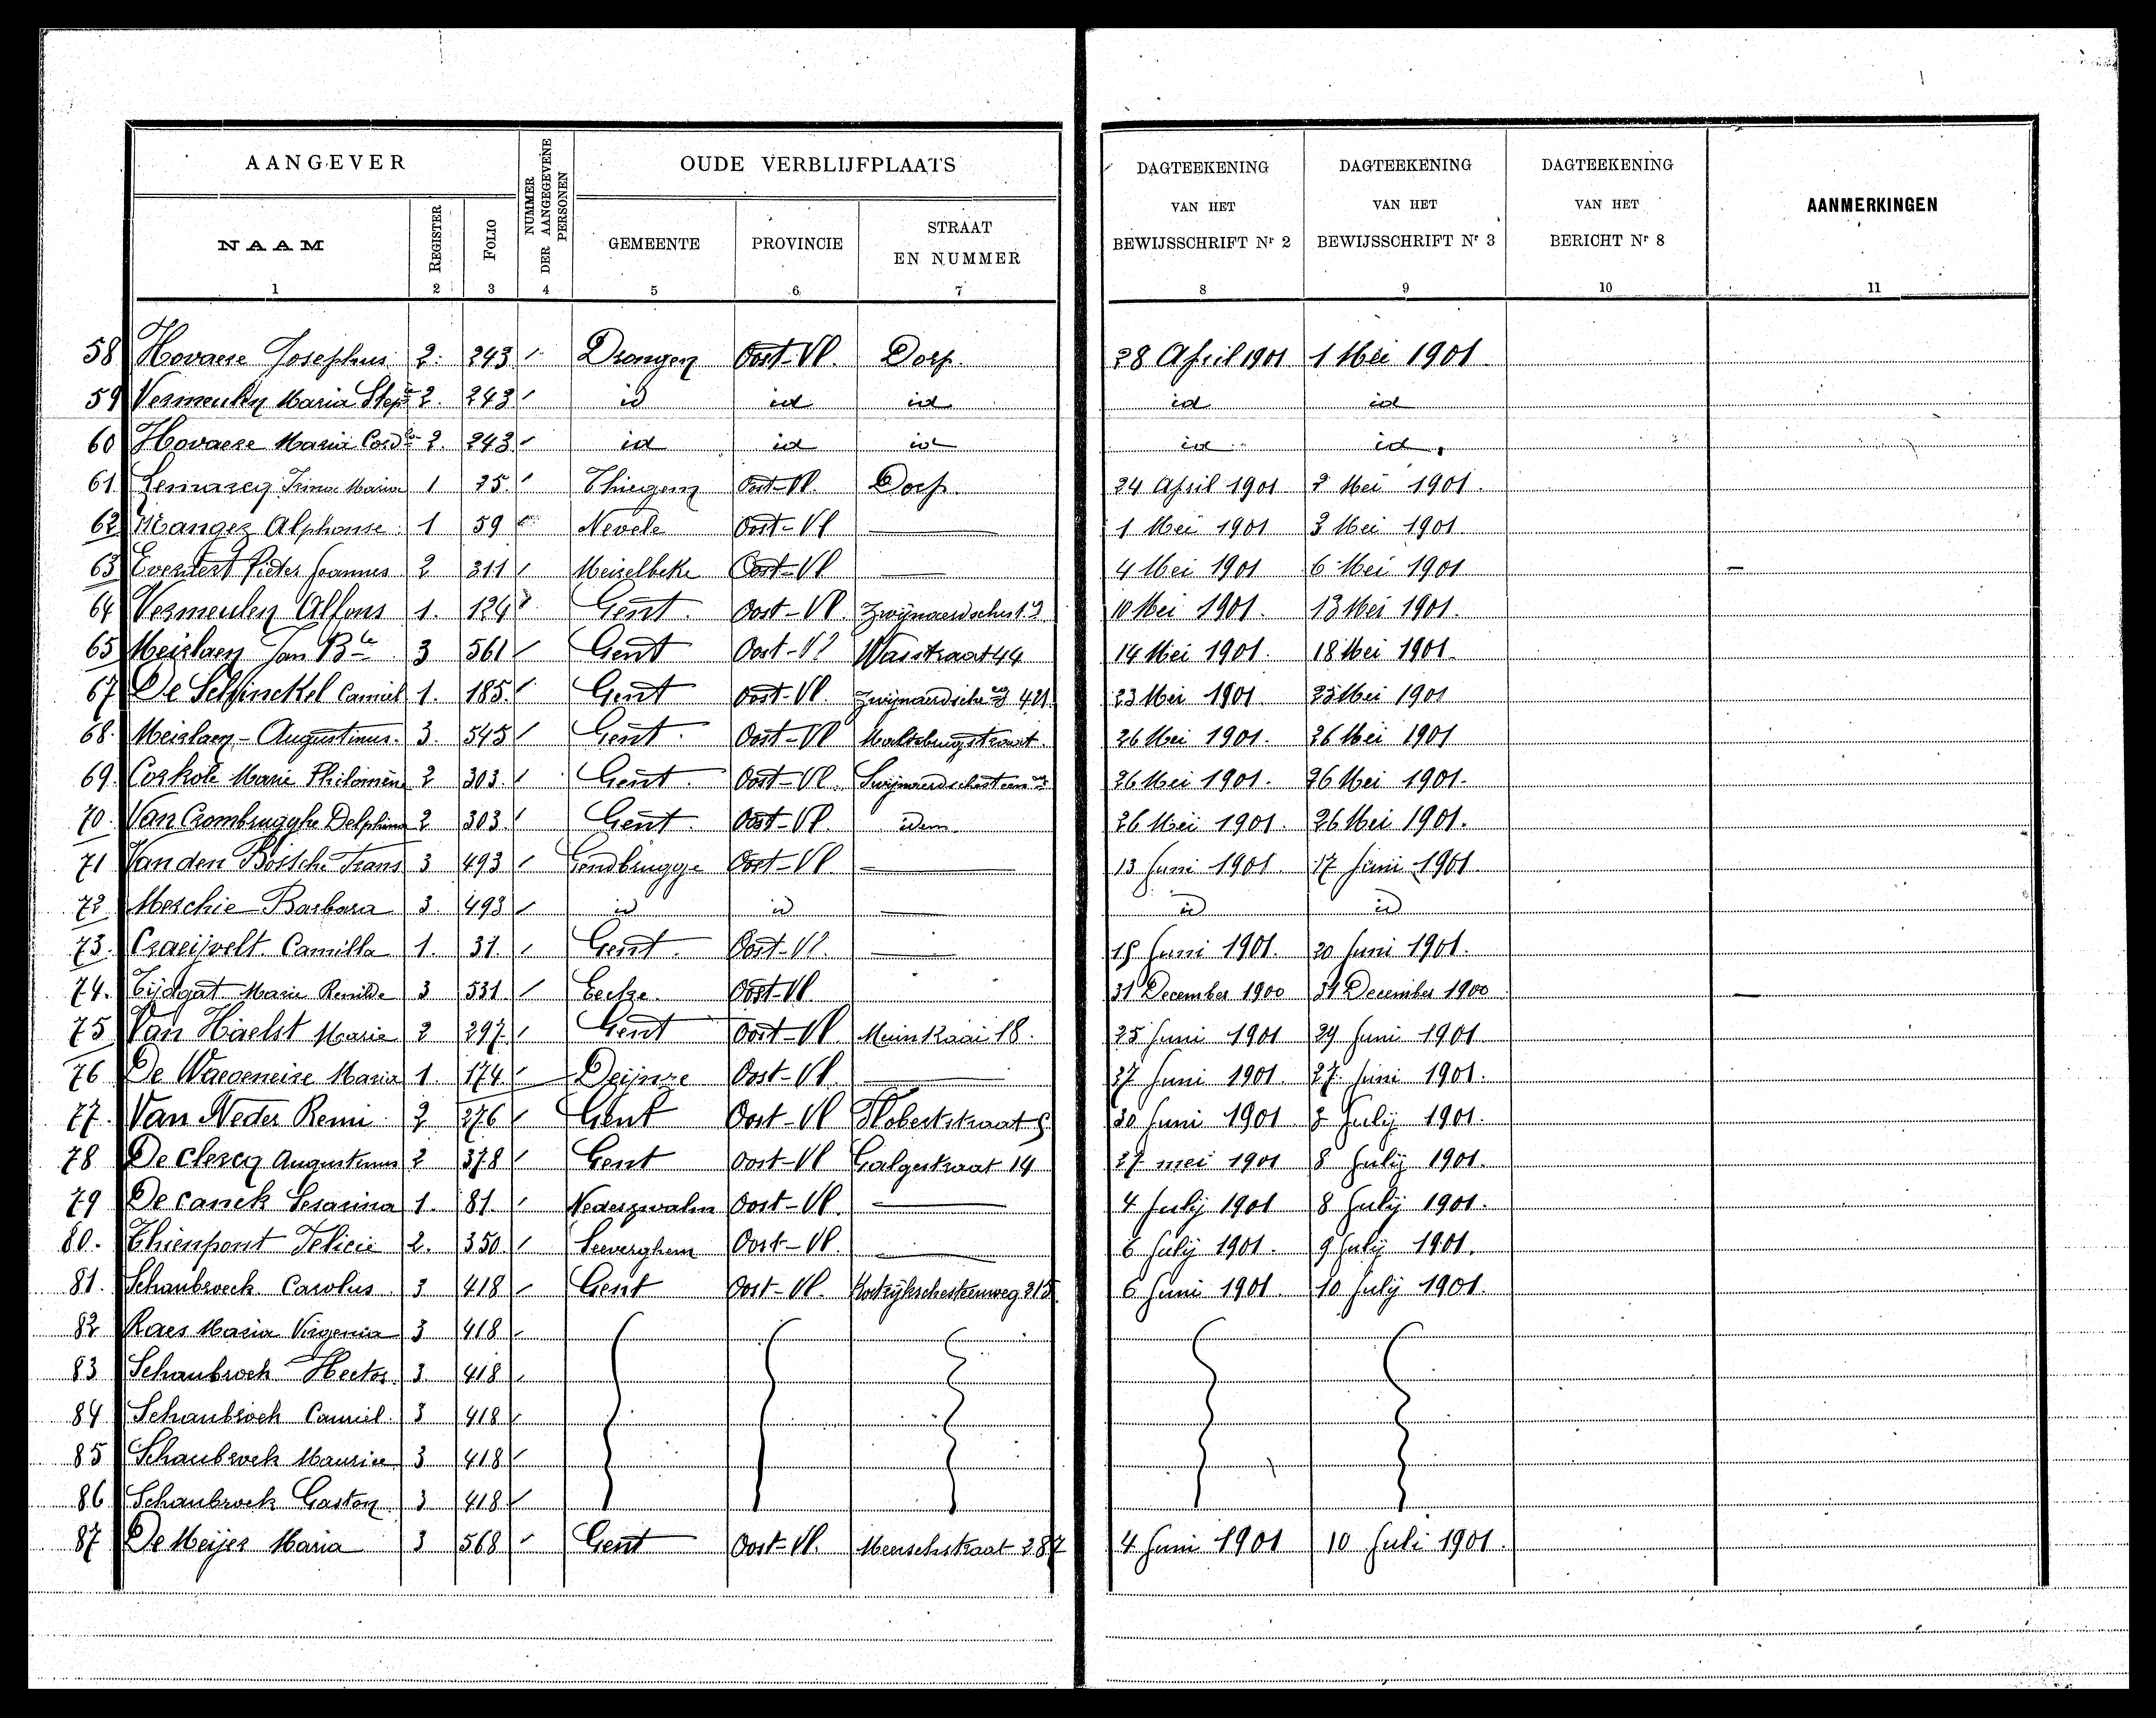 AANGEVER
NUMMER DER AANGEGEVENE PERSONEN
OUDE VERBLIJFPLAATS
DAGTEEKENING VAN HET BEWIJSSCHRIFT Nr 2
DAGTEEKENING VAN HET BEWIJSSCHRIFT Nr 3
DAGTEEKENING VAN HET BERICHT Nr 8
AANMERKINGEN
NAAM REGISTER FOLIO GEMEENTE PROVINCIE STRAAT EN NUMMER
1 2 3 4 5 6 7 8 9 10 11
58 Hovaere Josephus 2. 243 Drongen Oost-Vl. Dorp. 28 April 1901 1 Mei 1901
59 Vermeulen Maria 2. 243 id id id id id
60 Hovaere Maria 2. 243 id id id id id
61 Maria 1 25. Oost-Vl. Dorp. 24 April 1901 2 Mei 1901
62 Alphonse 1 59 Nevele Oost-Vl 1 Mei 1901 3 Mei 1901
63 Pieter Joannes 2 311 Meirelbeke Oost-Vl 4 Mei 1901 6 Mei 1901
64 Vermeulen Alfons 1. 124 Gent. Oost-Vl. 10 Mei 1901. 13 Mei 1901.
65 Meirlaen Jan Bte 3 561 Gent Oost-Vl Wasstraat 44 14 Mei 1901. 18 Mei 1901
67 De Schinckel Camiel 1. 185. Gent Oost-Vl. 421 23 Mei 1901 25 Mei 1901
68. Meirlaen Augustinus. 3. 545 Gent. Oost-Vl 26 Mei 1901. 26 Mei 1901
69. Marie Philomene 2 303. Gent. Oost-Vl. 26 Mei 1901. 26 Mei 1901.
70. Van Crombrugghe Delphina 2 303. Gent. Oost-Vl. idem. 26 Mei 1901. 26 Mei 1901.
71 Van den Bossche Frans 3 493 Gendbrugge Oost-Vl. 13 Juni 1901. 17 Juni 1901.
72 Meschie Barbara 3. 493 id id id id
73. Craeijvelt Camilla 1. 31. Gent. Oost-Vl. Juni 1901. 20 Juni 1901.
74. Tijdgat Marie Renilde 3 531 Eecke. Oost-Vl 31 December 1900 31 December 1900
75 Van Haelst Marie 2 297 Gent Oost-Vl Muinkaai 18. 25 Juni 1901 29 Juni 1901
76 De Waegeneire Maria 1. 174 Deijnze Oost-Vl. 27 Juni 1901. 27 Juni 1901.
77. Van Neder Remi 2 276 Gent Oost-Vl 30 Juni 1901 July 1901.
78 De Clercq Augustinus 2 378 Gent Oost-Vl Galgestraat 14 27 mei 1901 8 July 1901.
79 De canck Sesarina 1. 81. Nederzwalm Oost-Vl. 4 July 1901 8 July 1901.
80. Thienpont Felicie 2. 350 Seeverghem Oost-Vl. 6 July 1901. 9 July 1901.
81. Schaubroeck Carolus 3 418 Gent Oost-Vl. Kortrijkschesteenweg 215 6 Juni 1901. 10 July 1901.
82 Raes Maria Virgenia 3 418
83 Schaubroek Hector 3 418
84 Schaubroek Camiel 3 418
85 Schaubroek Maurice 3 418
86 Schaubroek Gaston 3 418
87 De Meijer Maria 3 568 Gent Oost-Vl. Meerschstraat 287 4 Juni 1901 10 Juli 1901.